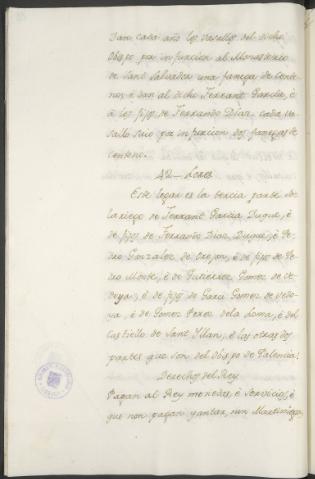 Dan cada año los vasallos del dicho
Obispo por infurcion al Monasterio
de Sant Salvador una fanega de cente-
no: é dan al dicho Ferrant Garcia, é
á los fijos de Ferrando Diaz, cada va-
sallo suio por infurcion dos fanegas de
centeno.
42 - Lores
Este logar es la tercia parte so-
lariego de Ferrant Garcia Duque, é
de fijos de Ferrando Diaz Duque, é Pe-
dro Gonzalez de Orejon, é de fijos de Pe-
dro Monte, é de Gutierrez Gomez de Ce-
doya, é de fijos de Garci Gomez de Vedo-
ya, é de Gomez Perez de la Loma, é del
Castiello de Sant Illan, é las otras dos
partes que son del Obispo de Palencia.
Derechos del Rey
Pagan al Rey monedas, é servicios, é
que non pagan yantar, nin Martiniega.